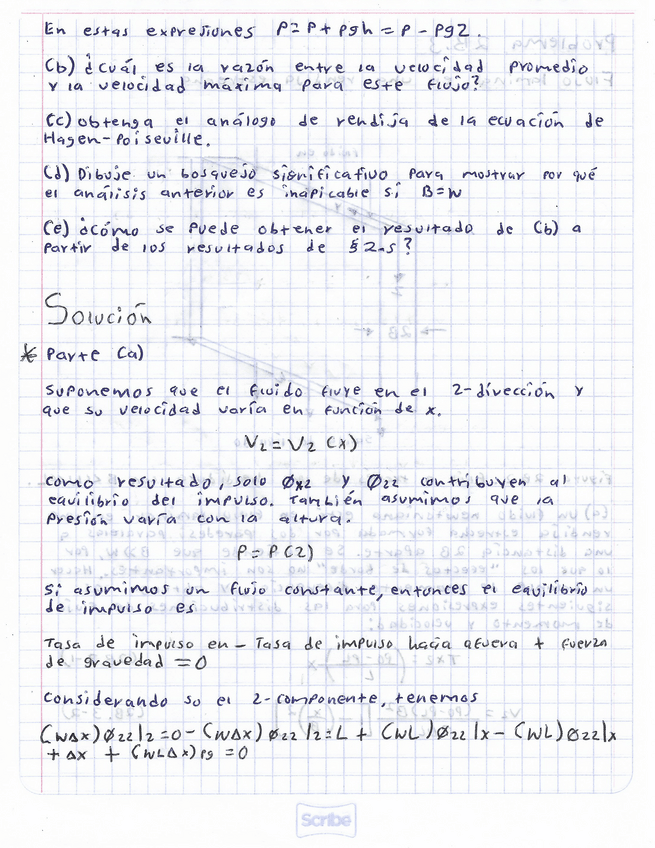 En estas expresiones P=P+ρgh=P-ρgz.
(b) ¿cuál es la razón entre la velocidad promedio
y la velocidad máxima para este flujo?
(c) obtenga el análogo de rendija de la ecuación de
Hagen-Poiseville.
(d) Dibuje un bosquejo significativo para mostrar por qué
el análisis anterior es inaplicable si B=W
(e) ¿cómo se puede obtener el resultado de (b) a
partir de los resultados de §2.5?
Solución
* Parte (a)
suponemos que el fluido fluye en el z-dirección y
que su velocidad varía en función de x.
Vz=Vz (x)
como resultado, solo Øxz y Øzz contribuyen al
equilibrio del impulso. también asumimos que la
presión varía con la altura.
P=P(z)
si asumimos un flujo constante, entonces el equilibrio
de impulso es
Tasa de impulso en - Tasa de impulso hacia afuera + fuerza
de gravedad =0
considerando so el z-componente, tenemos
(WΔx)Øzz|z=0-(WΔx)Øzz|z=L + (WL)Øzz|x-(WL)Øzz|x
+Δx + (WLΔx)ρg=0
Scribe